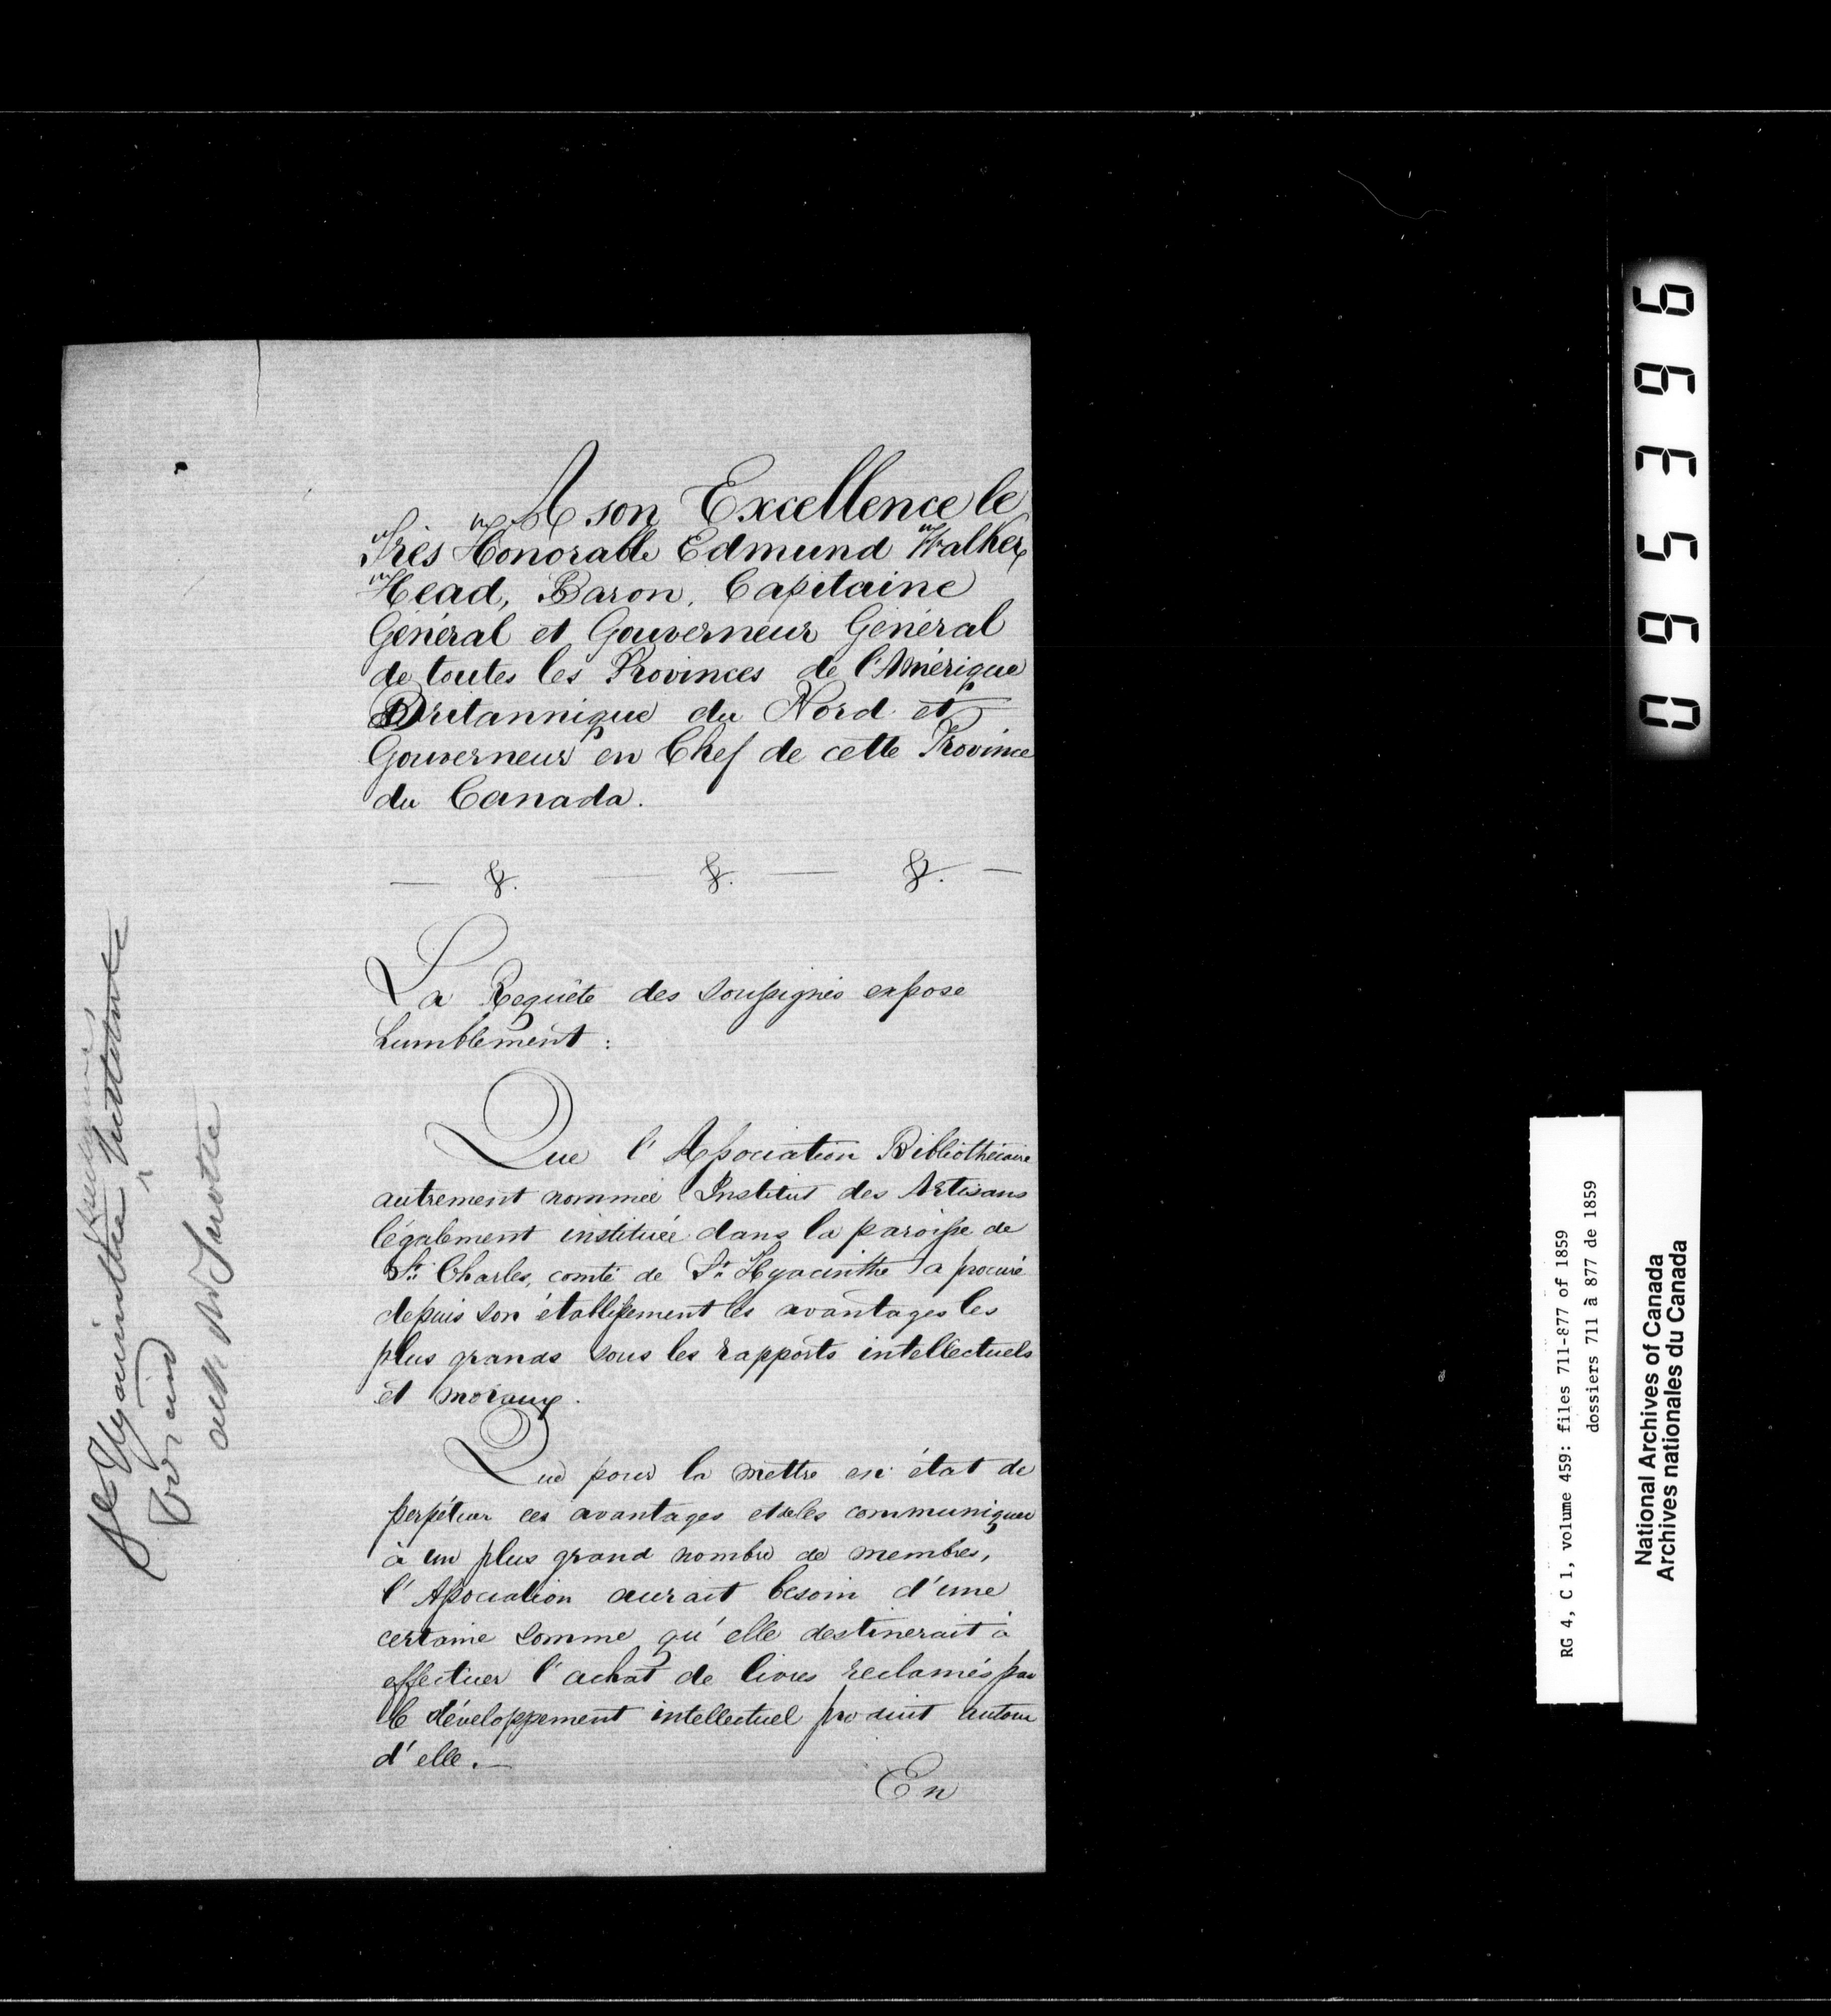 A son Excellence le
Très Honorable Edmund Walker
Head, Baron, Capitaine
Général et Gouverneur Général
de toutes les Provinces de l'Amérique
Britannique du Nord et
Gouverneur en Chef de cette Province
du Canada.
— &. — &. — &. —
La Requête des soussignés expose
humblement :
Que l'Association Bibliothécaire
autrement nommée Institut des Artisans
légalement instituée dans la paroisse de
St. Charles, comté de St. Hyacinthe a procuré
depuis son établissement les avantages les
plus grands sous les rapports intellectuels
et moraux.
Que pour la mettre en état de
perpétuer ces avantages et de les communiquer
à un plus grand nombre de membres,
l'Association aurait besoin d'une
certaine somme qu'elle destinerait à
effectuer l'achat de livres reclamés par
le développement intellectuel produit autour
d'elle.—
En
St Hyacinthe
096396
RG 4, C 1, volume 459: files 711-877 of 1859
dossiers 711 à 877 de 1859
National Archives of Canada
Archives nationales du Canada